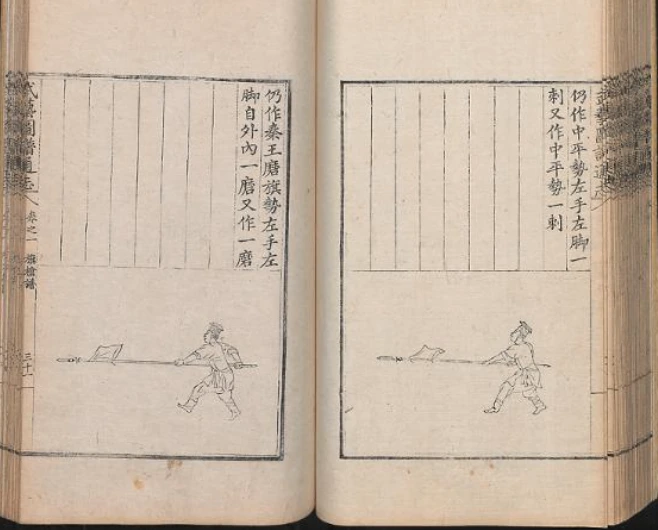 仍作中平勢左手左脚一
刺又作中平勢一刺
仍作秦王磨旗勢左手左
脚自外內一磨又作一磨
武藝圖譜通志
卷之一
旗槍譜
三十一